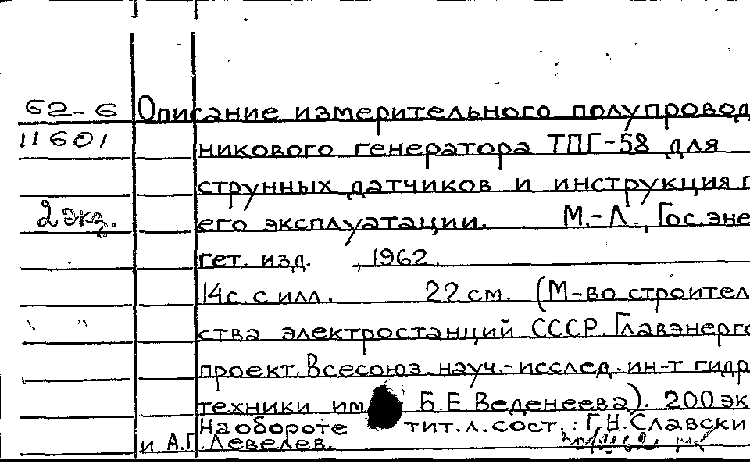 62-6 Описание измерительного полупровод
11601 никового генератора ТПГ-58 для
струнных датчиков и инструкция п
2 экз. его эксплуатации. М.-Л., Гос. эне
гет. изд. 1962.
14с. с илл. 22 см. (М-во строител
ства электростанций СССР. Главэнерго
проект. Всесоюз. науч.-исслед. ин-т гидр
техники им Б.Е. Веденеева). 200 эк
На обороте тит. л. сост.: Г.Н. Славски
и А.Г. Левелев.